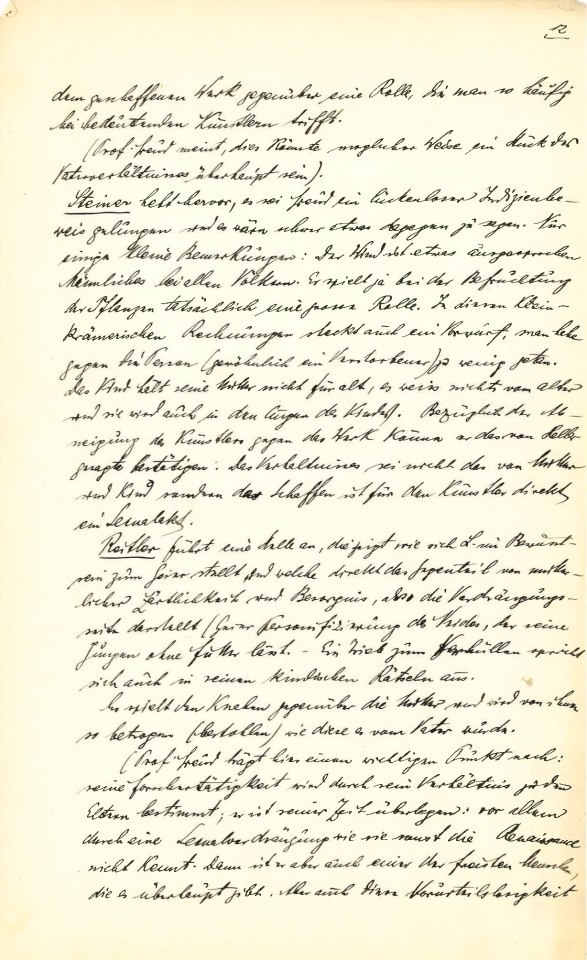 12
dem geschaffenen Werk gegenüber eine Rolle, die man so häufig
bei bedeutenden Künstlern trifft.
(Prof. Freud meint, dies könnte möglicher Weise ein Stück des
Vaterverhältnisses überhaupt sein).
Steiner hebt hervor, es sei Freud ein lückenloser Indizienbe-
weis gelungen und es wäre schwer etwas dagegen zu sagen. Nur
einige kleine Bemerkungen: Der Wind ist etwas ausgesprochen
Männliches bei allen Völkern. Er spielt ja bei der Befruchtung
der Pflanzen tatsächlich eine grosse Rolle. In diesen klein-
krämerischen Rechnungen steckt auch ein Vorwurf, man habe
gegen die Person (gewöhnlich ein Verstorbener) zu wenig getan.
Das Kind hält seine Mutter nicht für alt, es weiss nichts vom alter
und sie wird auch in den Augen des Kindes. Bezüglich der Ab-
neigung des Künstlers gegen das Werk könne er das von Heller
gesagte bestätigen. Das Verhältniss sei nicht das von Mutter
und Kind sondern das Schaffen ist für den Künstler direkt
ein Sexualakt.
Reitler führt eine Stelle an, die zeigt wie sich L. im Bewusst-
sein zum Geier stellt und welche direkt das Gegenteil von mütter-
licher Zärtlichkeit und Besorgnis, also die Verdrängungs-
seite darstellt (Geier Personifizierung des Neides, der seine
Jungen ohne Futter lässt. - Ein Trieb zum Verhüllen spricht
sich auch in seinen kindischen Rätseln aus.
Er spielt den Knaben gegenüber die Mutter und wird von ihnen
so betrogen (bestohlen) wie diese es vom Vater wurde.
(Prof. Freud trägt hier einen wichtigen Punkt nach:
seine Forschertätigkeit wird durch sein Verhältnis zu den
Eltern bestimmt; er ist seiner Zeit überlegen: vor allem
durch eine Sexualverdrängung wie sie sonst die Renaissance
nicht kennt. Dann ist er aber auch einer der freisten Menschen,
die es überhaupt gibt. Aber auch diese Vorurteilslosigkeit